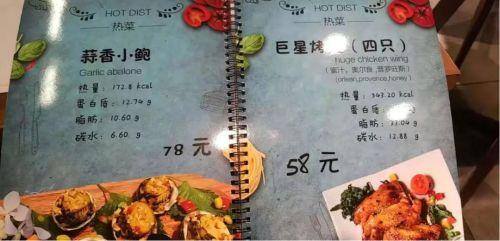 HOT DIST
热菜
蒜香小鲍
Garlic abalone
热量：172.8 kcal
蛋白质：12.74 g
脂肪：10.60 g
碳水：6.60 g
78 元
HOT DIST
热菜
巨星烤（四只）
huge chicken wing
（蜜汁，奥尔良，普罗旺斯）
(orlean,provence,honey)
热量：343.20 kcal
蛋白质：
脂肪：
碳水：12.88 g
58 元